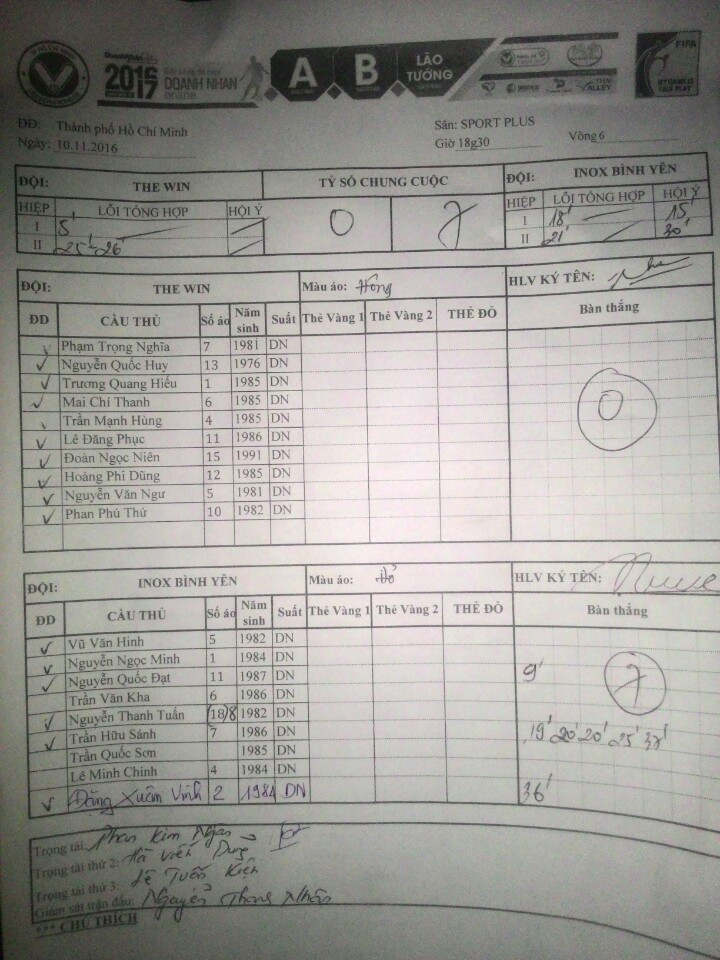 2016
2017
DOANH NHÂN
A B LÃO TƯỚNG
FIFA
DYNAMIC FAIR PLAY
ĐĐ: Thành phố Hồ Chí Minh Sân: SPORT PLUS
Ngày: 10.11.2016 Giờ 18g30 Vòng 6
ĐỘI: THE WIN TỶ SỐ CHUNG CUỘC ĐỘI: INOX BÌNH YÊN
HIỆP LỖI TỔNG HỢP HỘI Ý 0 7 HIỆP LỖI TỔNG HỢP HỘI Ý
I 5' I 18' 15'
II 25' 26' II 21' 30'
ĐỘI: THE WIN Màu áo: Hồng HLV KÝ TÊN:
ĐD CẦU THỦ Số áo Năm sinh Suất Thẻ Vàng 1 Thẻ Vàng 2 THẺ ĐỎ Bàn thắng
Phạm Trọng Nghĩa 7 1981 DN
Nguyễn Quốc Huy 13 1976 DN
Trương Quang Hiếu 1 1985 DN
Mai Chí Thanh 6 1985 DN
Trần Mạnh Hùng 4 1985 DN
0
Lê Đăng Phục 11 1986 DN
Đoàn Ngọc Niên 15 1991 DN
Hoàng Phi Dũng 12 1985 DN
Nguyễn Văn Ngư 5 1981 DN
Phan Phú Thứ 10 1982 DN
ĐỘI: INOX BÌNH YÊN Màu áo: Đỏ HLV KÝ TÊN:
ĐD CẦU THỦ Số áo Năm sinh Suất Thẻ Vàng 1 Thẻ Vàng 2 THẺ ĐỎ Bàn thắng
Vũ Văn Hinh 5 1982 DN
Nguyễn Ngọc Minh 1 1984 DN
Nguyễn Quốc Đạt 11 1987 DN 9' 7
Trần Văn Kha 6 1986 DN
Nguyễn Thanh Tuấn (18) 8 1982 DN
Trần Hữu Sánh 7 1986 DN 19' 20' 20' 25' 37'
Trần Quốc Sơn 1985 DN
Lê Minh Chinh 4 1984 DN
Đặng Xuân Vinh 2 1984 DN 36'
Trọng tài: Phan Kim Ngân
Trọng tài thứ 2: Hà Viết Dũng
Trọng tài thứ 3: Lê Tuấn Kiện
Giám sát trận đấu: Nguyễn Thanh Nhân
*** CHÚ THÍCH